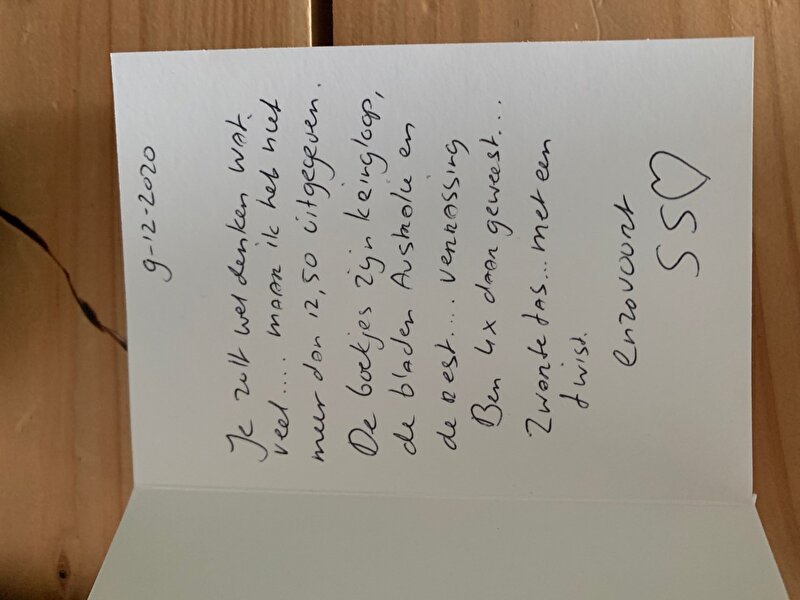 9-12-2020
Je zult wel denken wat
veel..... maar ik heb niet
meer dan 12,50 uitgegeven.
De boekjes zijn kringloop,
de bladen Australie en
de rest.... verrassing
Ben 4x daar geweest...
Zwarte tas... met een
twist.
enzovoort
SS♡